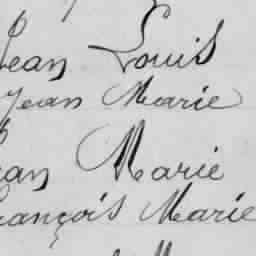 Jean Louis
Jean Marie
Jean Marie
François Marie